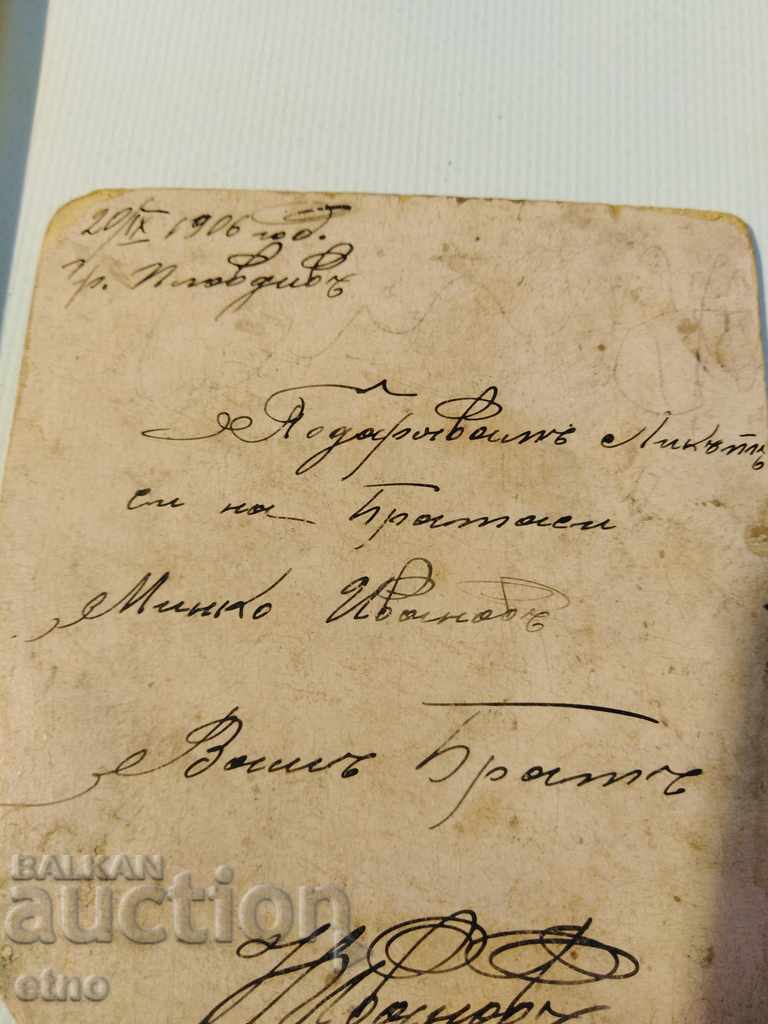 29/IX 1906 год.
гр. Пловдивъ
Подарявамъ Ликътъ
си на Братаси
Минко Ивановъ
Вашъ Братъ
Ивановъ
BALKAN
auction
etno